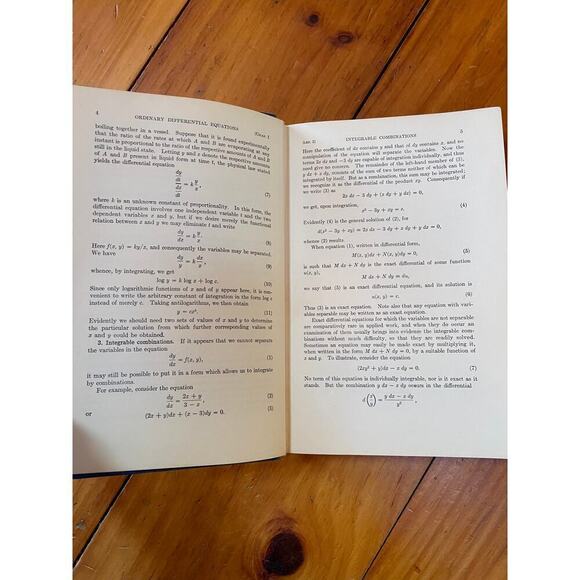 4 ORDINARY DIFFERENTIAL EQUATIONS [CHAP. I
boiling together in a vessel. Suppose that it is found experimentally
that the ratio of the rates at which A and B are evaporating at any
instant is proportional to the ratio of the respective amounts of A and B
still in the liquid state. Letting y and x denote the respective amounts
of A and B present in liquid form at time t, the physical law stated
yields the differential equation
dy/dt / dx/dt = k y/x,
where k is an unknown constant of proportionality. In this form, the
differential equation involves one independent variable t and the two
dependent variables x and y, but if we desire merely the functional
relation between x and y we may eliminate t and write
dy/dx = k y/x. (8)
Here f(x, y) = ky/x, and consequently the variables may be separated.
We have
dy/y = k dx/x, (9)
whence, by integrating, we get
log y = k log x + log c. (10)
Since only logarithmic functions of x and of y appear here, it is con-
venient to write the arbitrary constant of integration in the form log c
instead of merely c. Taking antilogarithms, we then obtain
y = cxᵏ. (11)
Evidently we should need two sets of values of x and y to determine
the particular solution from which further corresponding values of
x and y could be obtained.
3. Integrable combinations. If it appears that we cannot separate
the variables in the equation
dy/dx = f(x, y), (1)
it may still be possible to put it in a form which allows us to integrate
by combinations.
For example, consider the equation
dy/dx = (2x + y)/(3 − x), (2)
or (2x + y)dx + (x − 3)dy = 0. (3)
INTEGRABLE COMBINATIONS 5
Here the coefficient of dx contains y and that of dy contains x, and no
manipulation of the equation will separate the variables. Now the
terms 2x dx and −3 dy are capable of integration individually, and thus
need give no concern. The remainder of the left-hand member of (3),
y dx + x dy, consists of the sum of two terms neither of which can be
integrated by itself. But as a combination, this sum may be integrated;
we recognize it as the differential of the product xy. Consequently if
we write (3) as
2x dx − 3 dy + (x dy + y dx) = 0,
we get, upon integration,
x² − 3y + xy = c. (4)
Evidently (4) is the general solution of (2), for
d(x² − 3y + xy) = 2x dx − 3 dy + x dy + y dx = 0,
whence (2) results.
When equation (1), written in differential form,
M(x, y)dx + N(x, y)dy = 0, (5)
is such that M dx + N dy is the exact differential of some function
u(x, y),
M dx + N dy = du,
we say that (5) is an exact differential equation, and its solution is
u(x, y) = c. (6)
Thus (3) is an exact equation. Note also that any equation with vari-
ables separable may be written as an exact equation.
Exact differential equations for which the variables are not separable
are comparatively rare in applied work, and when they do occur an
examination of them usually brings into evidence the integrable com-
binations without much difficulty, so that they are readily solved.
Sometimes an equation may easily be made exact by multiplying it,
when written in the form M dx + N dy = 0, by a suitable function of
x and y. To illustrate, consider the equation
(2xy² + y)dx − x dy = 0. (7)
No term of this equation is individually integrable, nor is it exact as it
stands. But the combination y dx − x dy occurs in the differential
d(x/y) = (y dx − x dy)/y²,